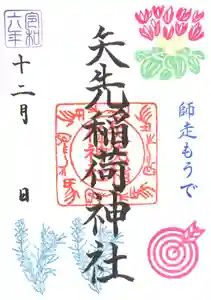 令和
六年
十二月 日
矢先稲荷神社
師走もうで